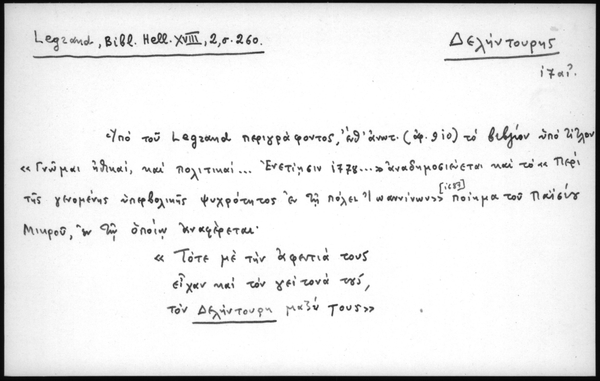 Legrand, Bibl. Hell. XVIII, 2, σ. 260.
Δελήντουρης
17 αἰ.
Ὑπό τοῦ Legrand περιγράφοντος, ἔνθ' ἀνωτ. (ἀρ. 910) τό βιβλίον ὑπό τίτλον
«Γνῶμαι ἠθικαί, καί πολιτικαί... Ἐνετίησιν 1778...» ἀναδημοσιεύεται καί τό «Περί
τῆς γενομένης ὑπερβολικῆς ψυχρότητος ἐν τῇ πόλει Ἰωαννίνων» ποίημα τοῦ Παϊσίου
Μικροῦ, ἐν τῷ ὁποίῳ ἀναφέρεται·
« Τότε μέ τήν ἀφεντιά τους
εἶχαν καί τόν γείτονά τους,
τόν Δελήντουρη μαζύ τους»